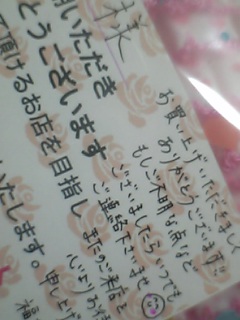 様
用いただき
とうございます
て頂けるお店を目指し
いたします。
お買い上げいただきまして
ありがとうございます
もしご不明な点など
ございましたらいつでも
ご連絡下さいませ
またのご来店を
心よりお待
申し上げ
福